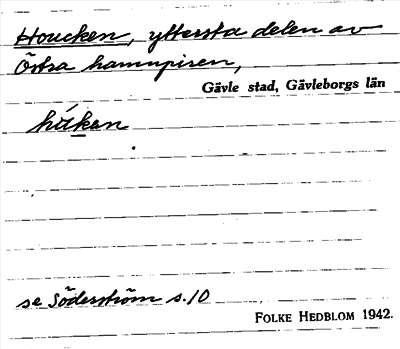 Houcken, yttersta delen av
Östra hamnpiren,
Gävle stad, Gävleborgs län
håken
se Söderström s. 10
FOLKE HEDBLOM 1942.